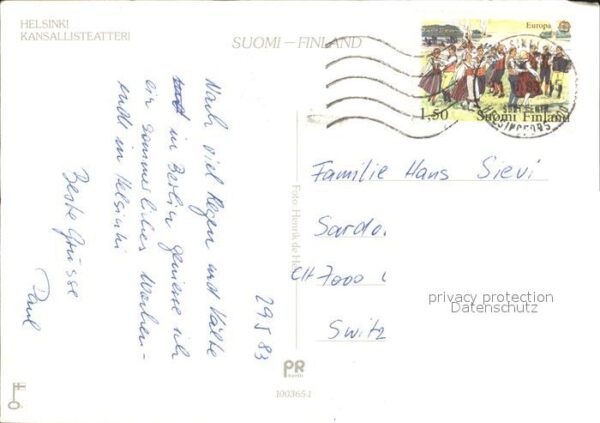 HELSINKI
KANSALLISTEATTERI
SUOMI – FINLAND
Europa
1,50 Suomi Finland
HELSINGFORS
29.5.83
Nach viel Regen und Kälte
in Berlin geniesse ich
ein sommerliches Wochen-
ende in Helsinki
Beste Grüsse
Paul
Foto: Henrik de He
Familie Hans Sievi
Sardo.
CH 7000
Switz
privacy protection
Datenschutz
PR
100365.1